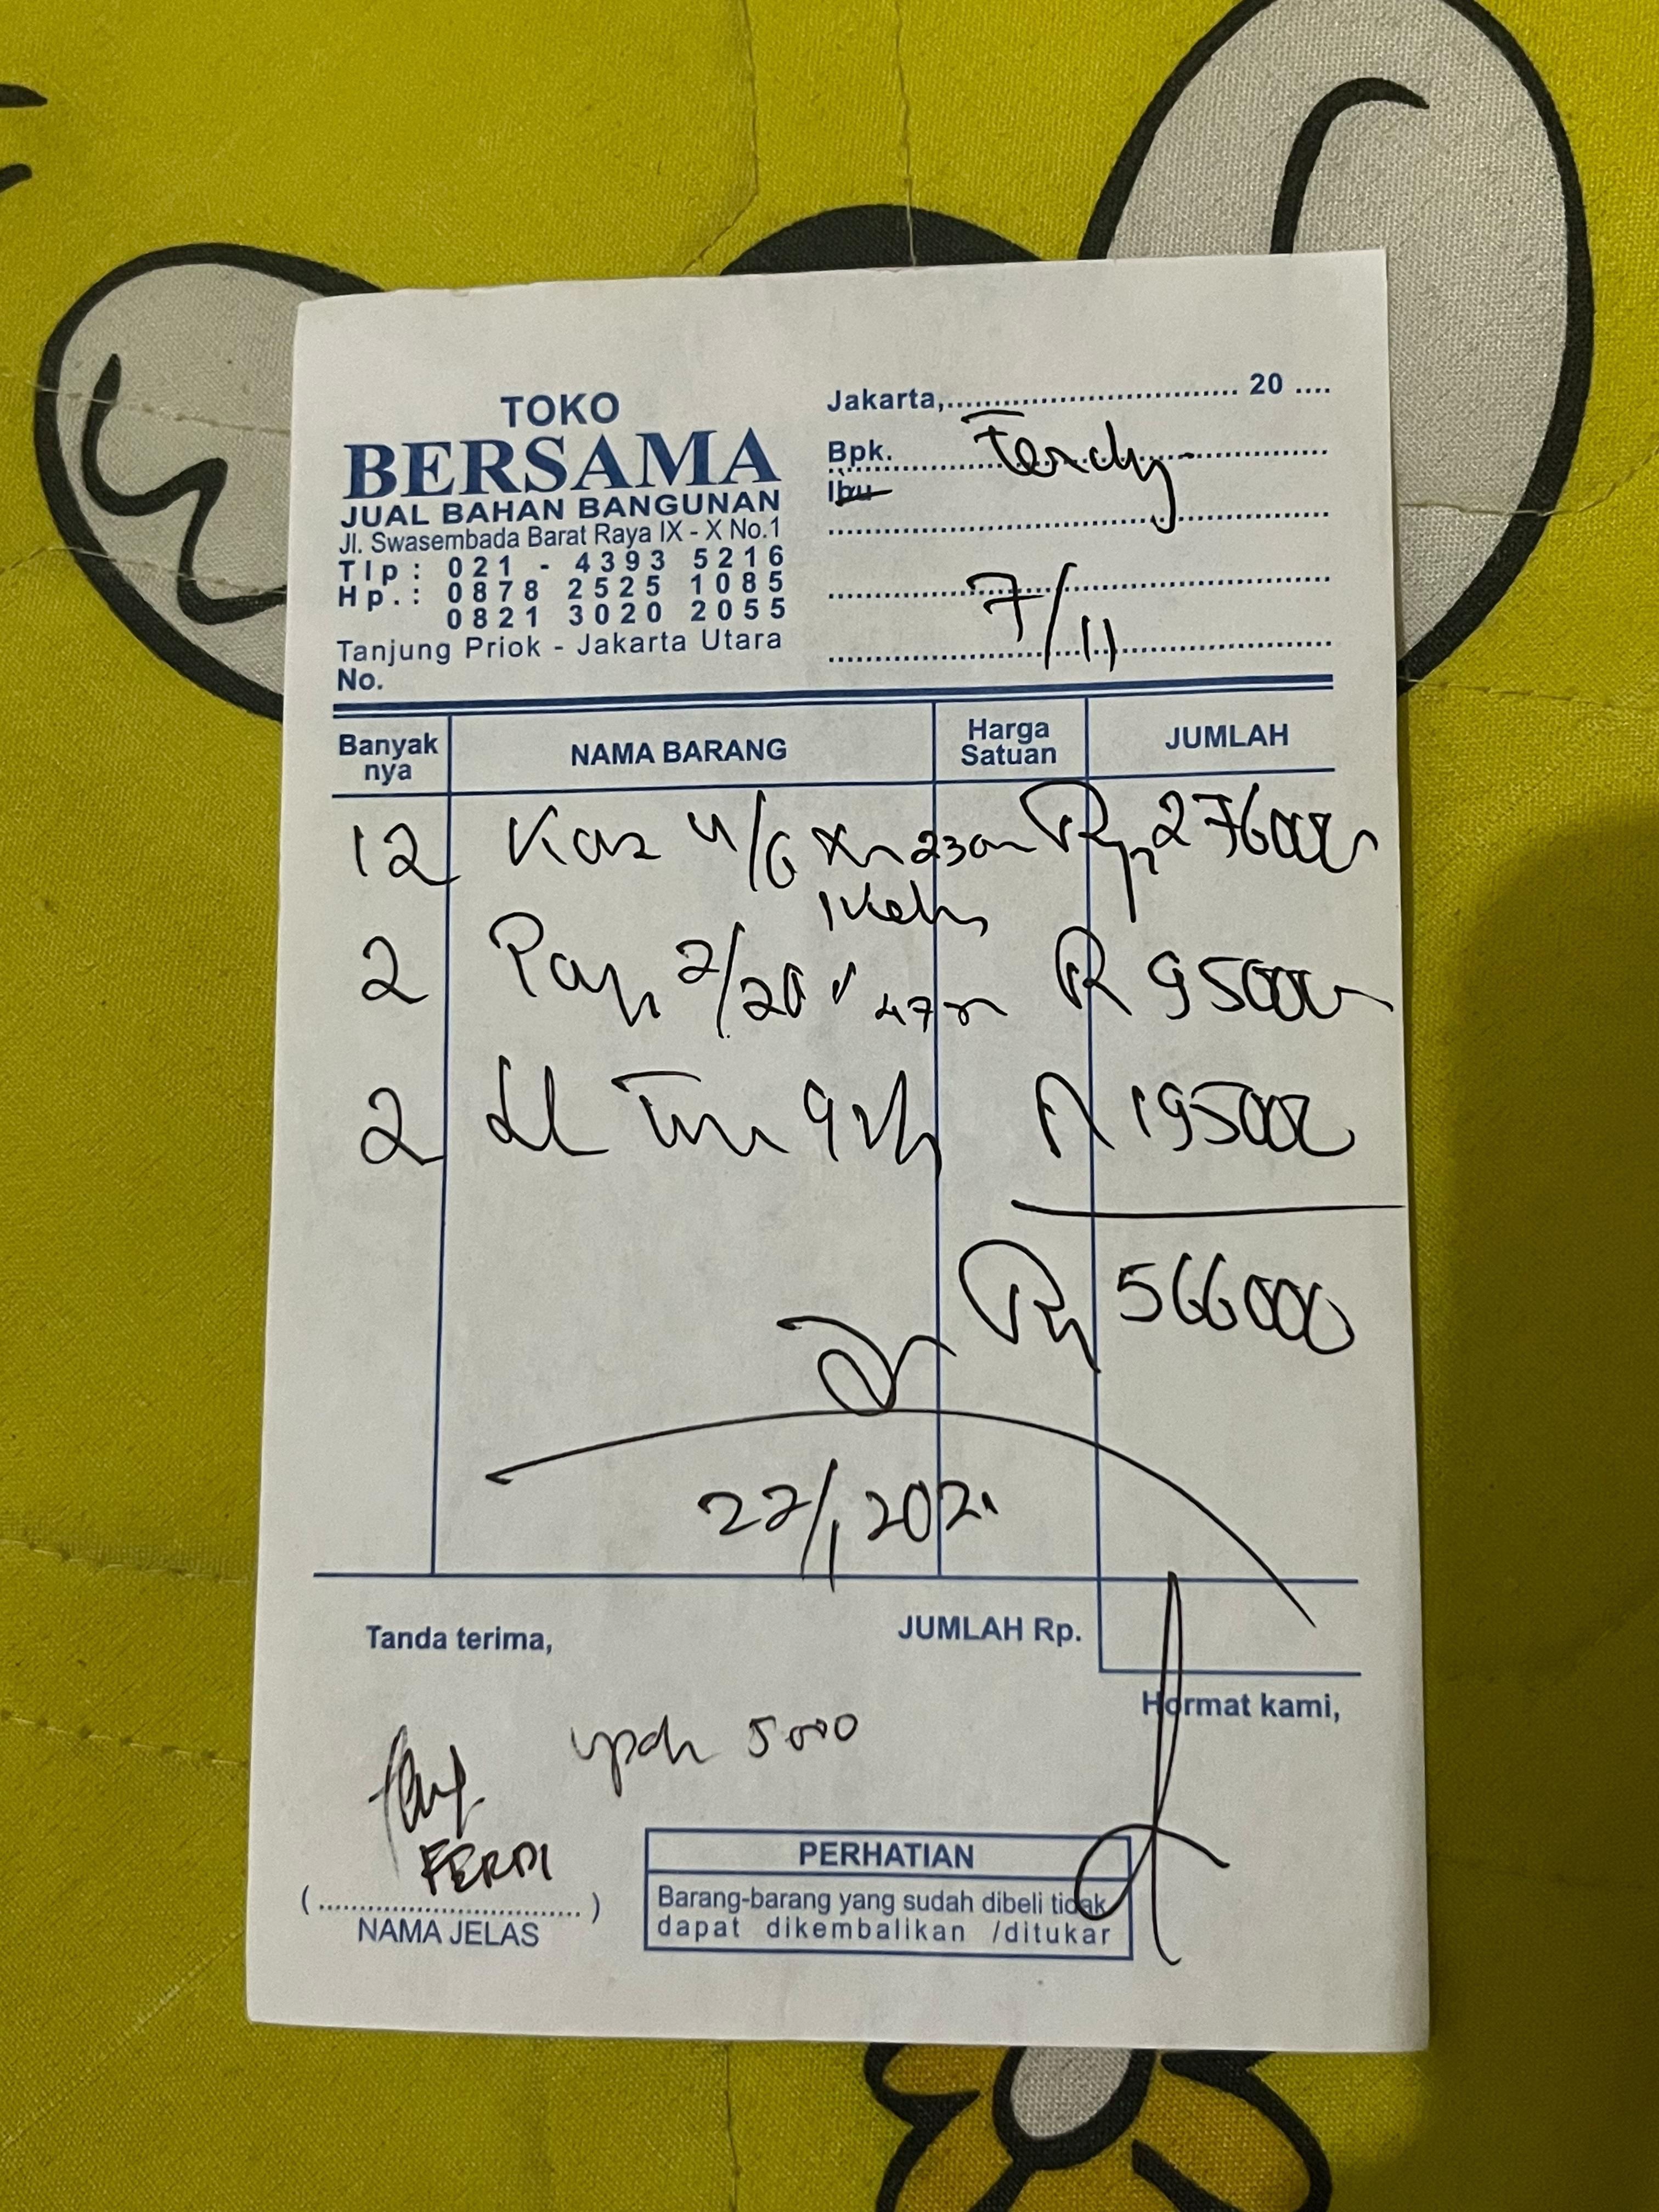 TOKO
BERSAMA
JUAL BAHAN BANGUNAN
Jl. Swasembada Barat Raya IX - X No.1
Tlp : 021 - 4393 5216
Hp. : 0878 2525 1085
0821 3020 2055
Tanjung Priok - Jakarta Utara
No.
Jakarta,.................................. 20 ....
Bpk. Ferdy
Ibu
7/11
Banyak nya NAMA BARANG Harga Satuan JUMLAH
12 4/6 Rp 276000
2 2/20 R 95000
2 195000
Rp 566000
22/1 202
Tanda terima,
JUMLAH Rp.
Hormat kami,
upah 5000
FERDI
(..................................)
NAMA JELAS
PERHATIAN
Barang-barang yang sudah dibeli tidak
dapat dikembalikan /ditukar